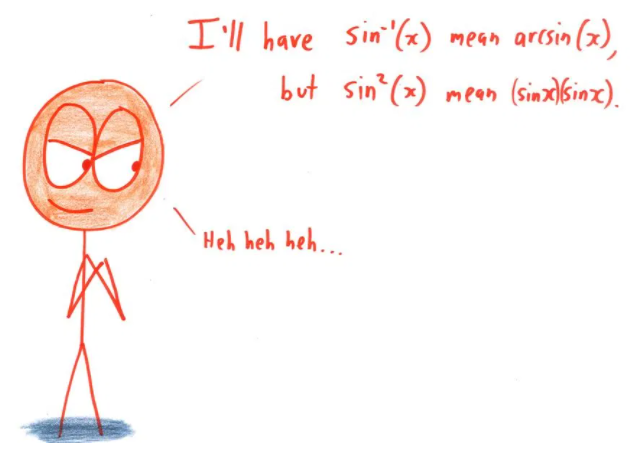 I'll have sin⁻¹(x) mean arcsin(x),
but sin²(x) mean (sinx)(sinx).
Heh heh heh...